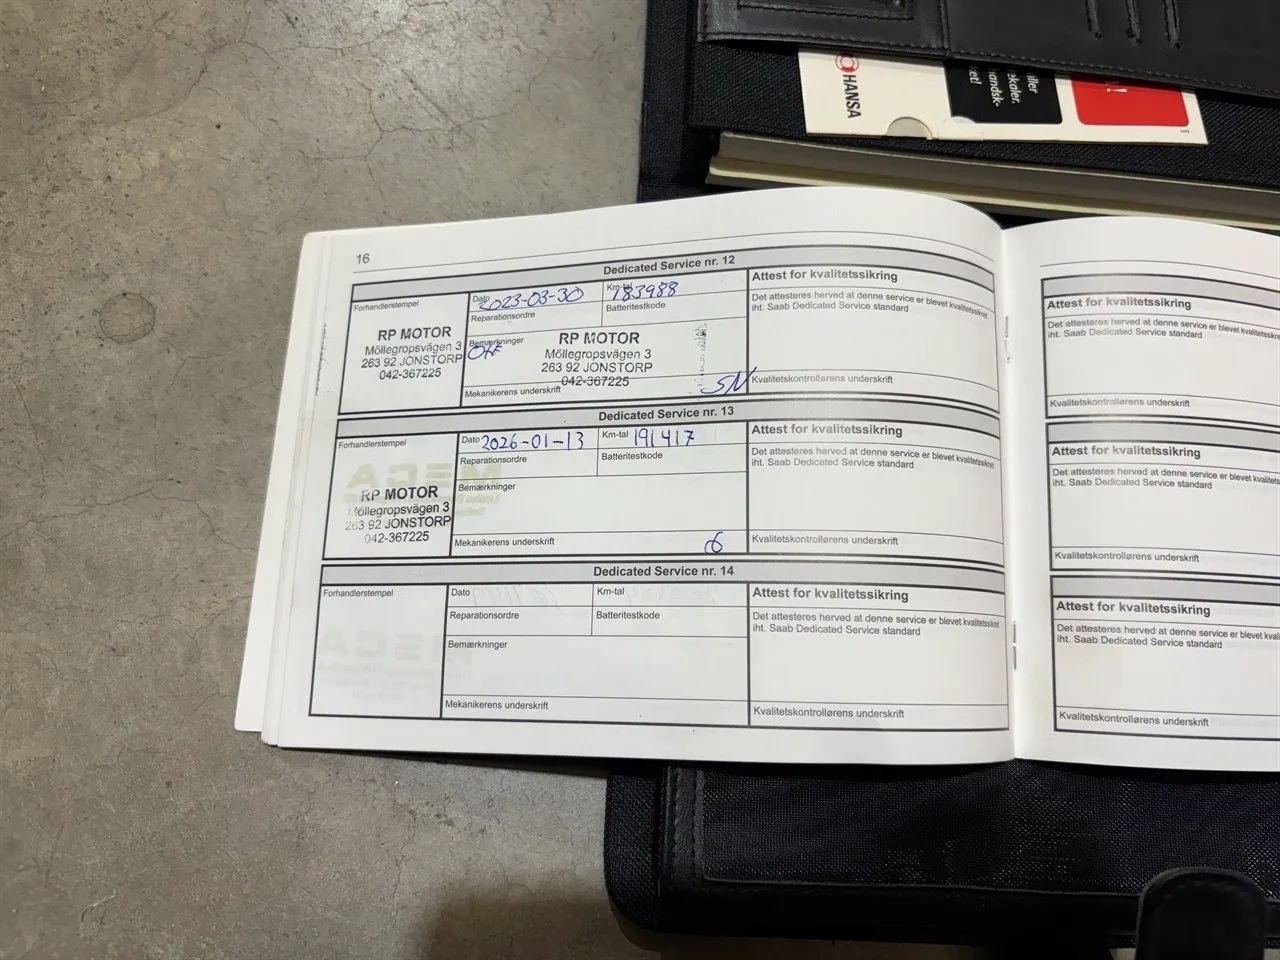 HANSA
iller
skaler.
andsk-
et!
16
Dedicated Service nr. 12
Forhandlerstempel
Dato 2023-03-30
Km-tal 183988
Attest for kvalitetssikring
Reparationsordre
Batteritestkode
Det attesteres herved at denne service er blevet kvalitetssikret
iht. Saab Dedicated Service standard
RP MOTOR
Möllegropsvägen 3
263 92 JONSTORP
042-367225
Bemærkninger
RP MOTOR
Möllegropsvägen 3
263 92 JONSTORP
042-367225
Mekanikerens underskrift SN
Kvalitetskontrollørens underskrift
Dedicated Service nr. 13
Forhandlerstempel
Dato 2026-01-13
Km-tal 191417
Attest for kvalitetssikring
Reparationsordre
Batteritestkode
Det attesteres herved at denne service er blevet kvalitetssikret
iht. Saab Dedicated Service standard
Bemærkninger
RP MOTOR
Möllegropsvägen 3
263 92 JONSTORP
042-367225
Mekanikerens underskrift
Kvalitetskontrollørens underskrift
Dedicated Service nr. 14
Forhandlerstempel
Dato
Km-tal
Attest for kvalitetssikring
Reparationsordre
Batteritestkode
Det attesteres herved at denne service er blevet kvalitetssikret
iht. Saab Dedicated Service standard
Bemærkninger
Mekanikerens underskrift
Kvalitetskontrollørens underskrift
Attest for kvalitetssikring
Det attesteres herved at denne service er blevet kvalitetssikre
iht. Saab Dedicated Service standard
Kvalitetskontrollørens underskrift
Attest for kvalitetssikring
Det attesteres herved at denne service er blevet kvalitets
iht. Saab Dedicated Service standard
Kvalitetskontrollørens underskrift
Attest for kvalitetssikring
Det attesteres herved at denne service er blevet kvali
iht. Saab Dedicated Service standard
Kvalitetskontrollørens underskrift